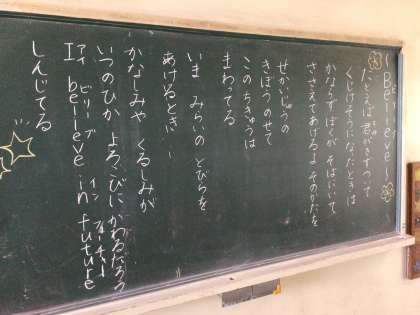 〜Believe〜
ビリーブ
たとえば君がきずついて
くじけそうになったときは
かならずぼくがそばにいて
ささえてあげるよ そのかたを
せかいじゅうの
きぼうのせて
このちきゅうは
まわってる
いま みらいの とびらを
あけるとき
かなしみや くるしみが
いつのひか よろこびにかわるだろう
アイ ビリーブ イン フューチャー
I believe in future
しんじてる